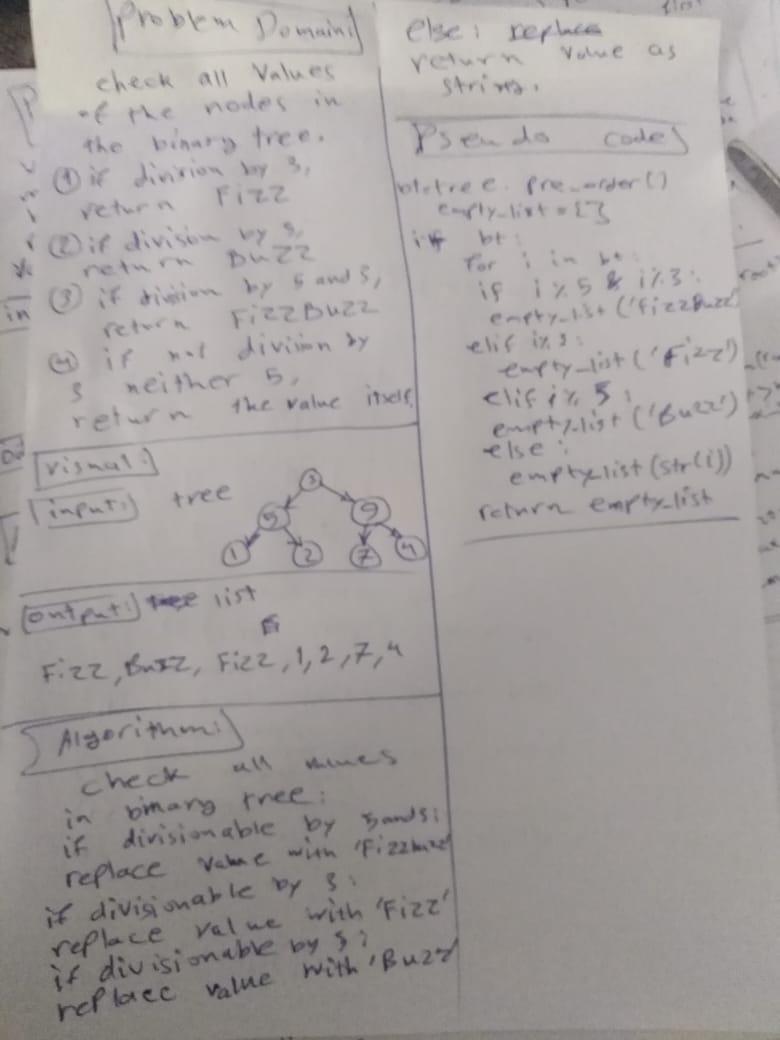 Problem Domain:
check all values
of the nodes in
the binary tree.
① if division by 3,
return Fizz
② if division by 5,
return Buzz
③ if division by 5 and 3,
return FizzBuzz
④ if not division by
3 neither 5,
return the value itself.
visual:
input: tree
3
5 9
1 2 7 4
output: list
Fizz, Buzz, Fizz, 1, 2, 7, 4
Algorithm:
check all values
in binary tree:
if divisionable by 5 and 3:
replace value with 'Fizzbuzz'
if divisionable by 3:
replace value with 'Fizz'
if divisionable by 5:
replace value with 'Buzz'
else: replace
return value as
string.
Pseudo code
bt=tree.pre_order()
empty_list = []
if bt:
for i in bt:
if i%5 & i%3:
empty_list('FizzBuzz')
elif i%3:
empty_list('Fizz')
elif i% 5:
empty_list('Buzz')
else:
empty_list(str(i))
return empty_list